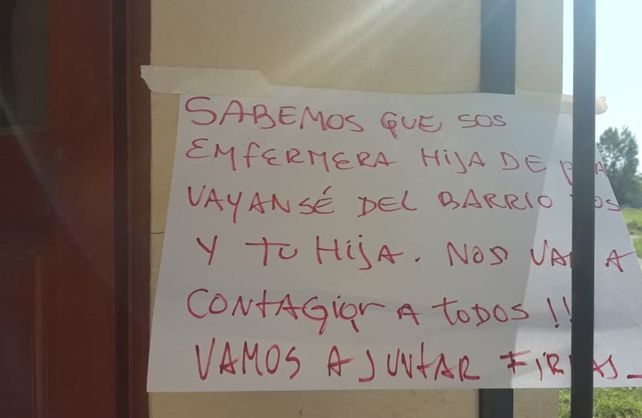 SABEMOS QUE SOS
EMFERMERA HIJA DE
VAYANSÉ DEL BARRIO
Y TU HIJA. NOS VAN A
CONTAGIAR A TODOS !!
VAMOS A JUNTAR FIRMAS_